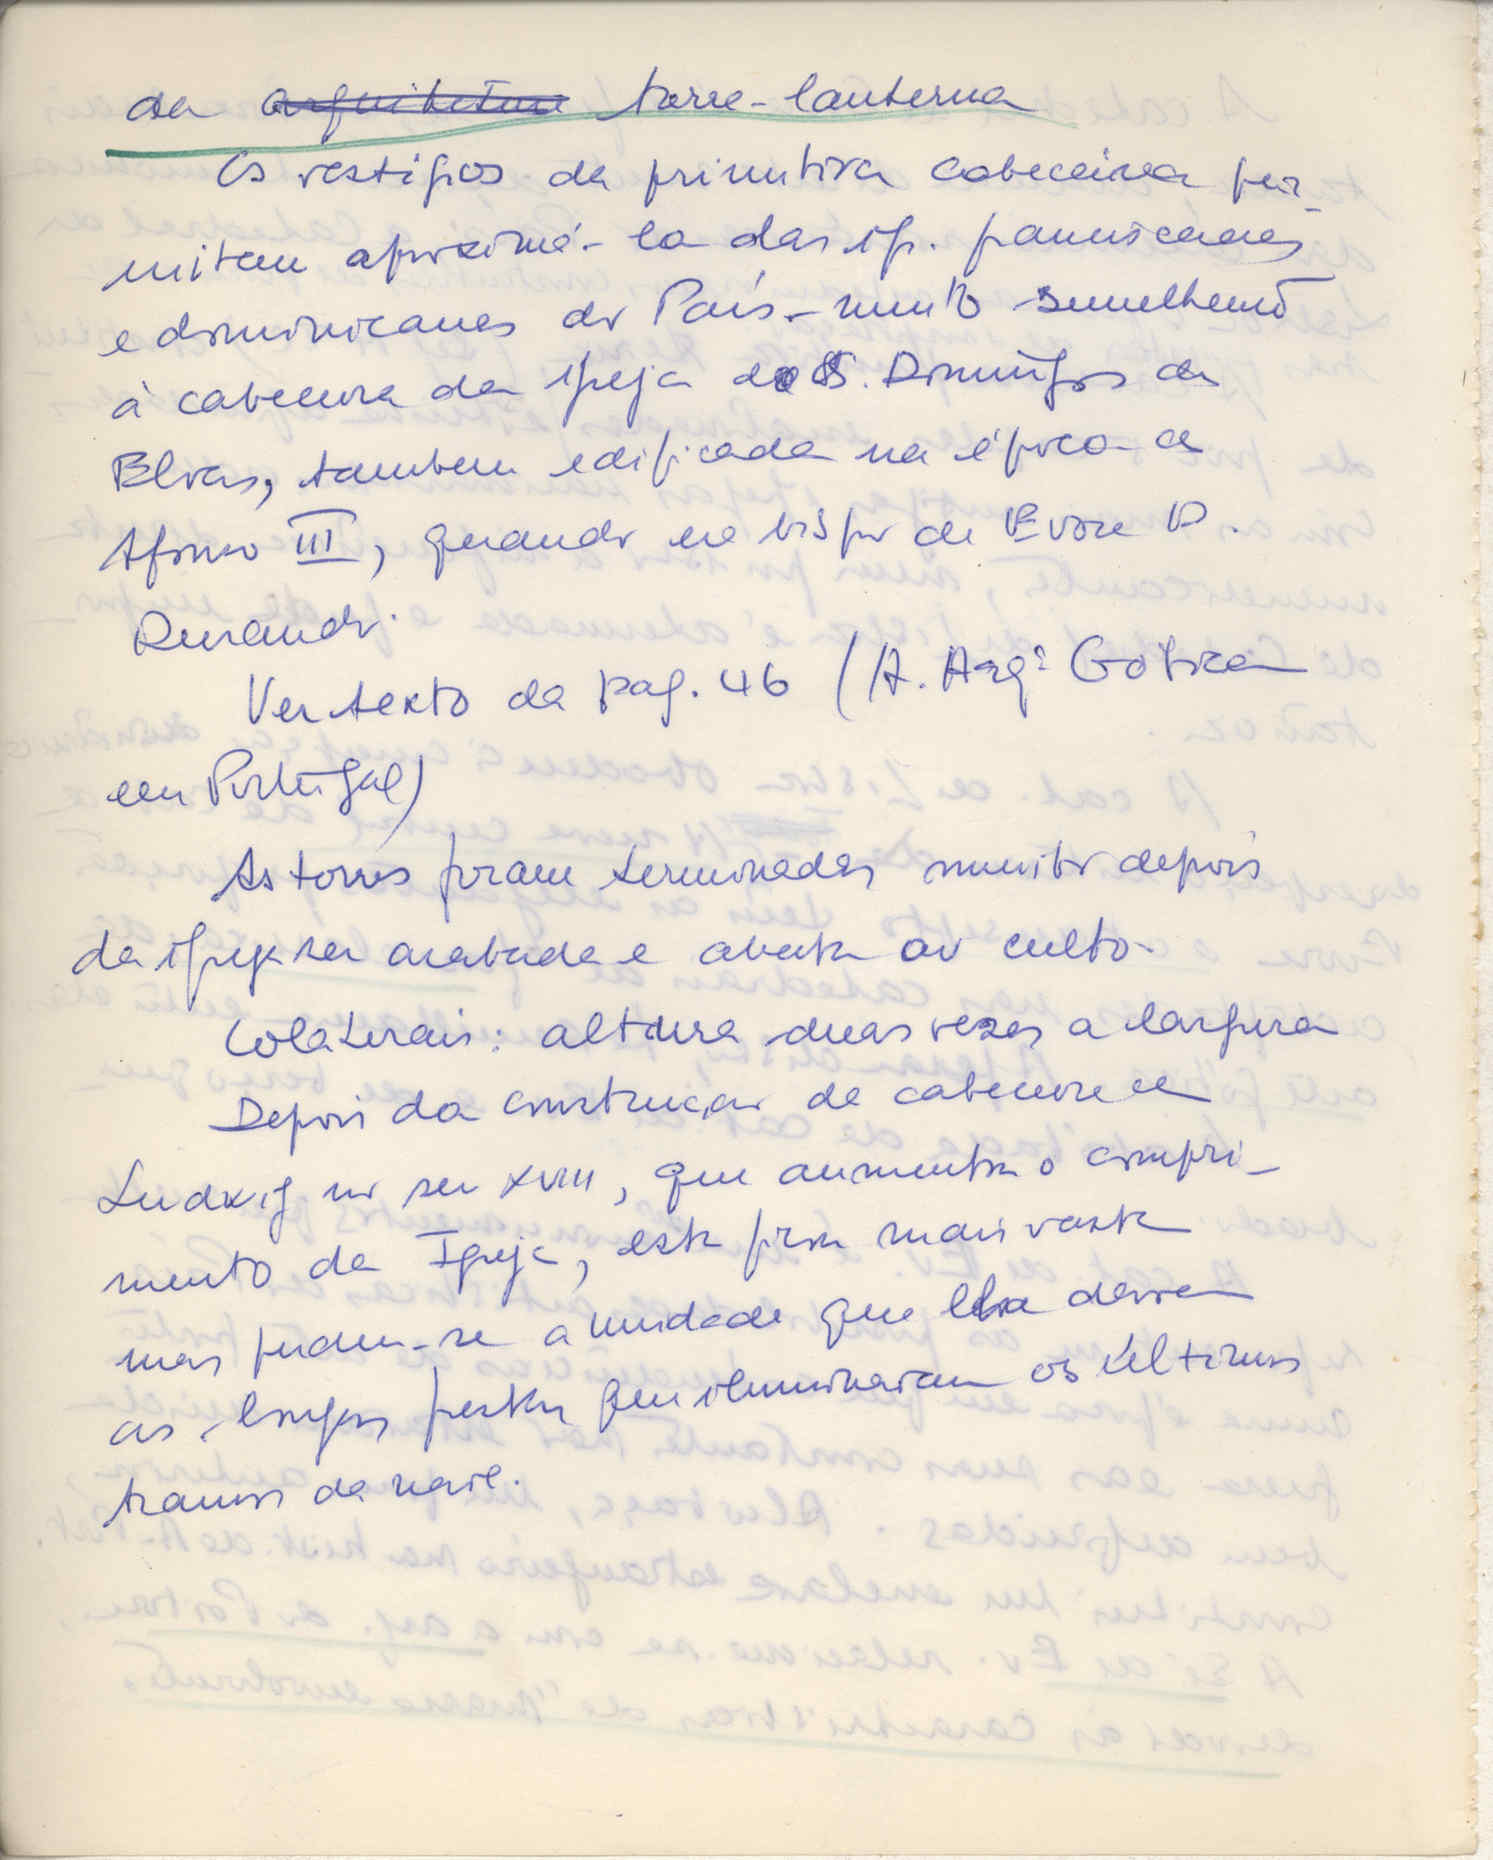 da arquitetura torre-lanterna
Os vestígios da primitiva cabeceira per-
mitem aproximá-la das ig. franciscanas
e dominicanas do País - muito semelhante
à cabeceira da igreja de S. Domingos de
Elvas, tambem edificada na época de
Afonso III, quando era bispo de Evora D.
Durando.
Ver texto da pag. 46 (A. Arqª Gótica
em Portugal)
As torres foram terminadas muito depois
da igreja ser acabada e aberta ao culto.
Colaterais: altura duas vezes a largura
Depois da construção da cabeceira de
Ludwig no sec XVIII, que aumentou o compri-
mento da Igreja, esta ficou mais vasta
mas perdeu-se a unidade que lhe davam
as longas frestas que iluminavam os últimos
tramos da nave.